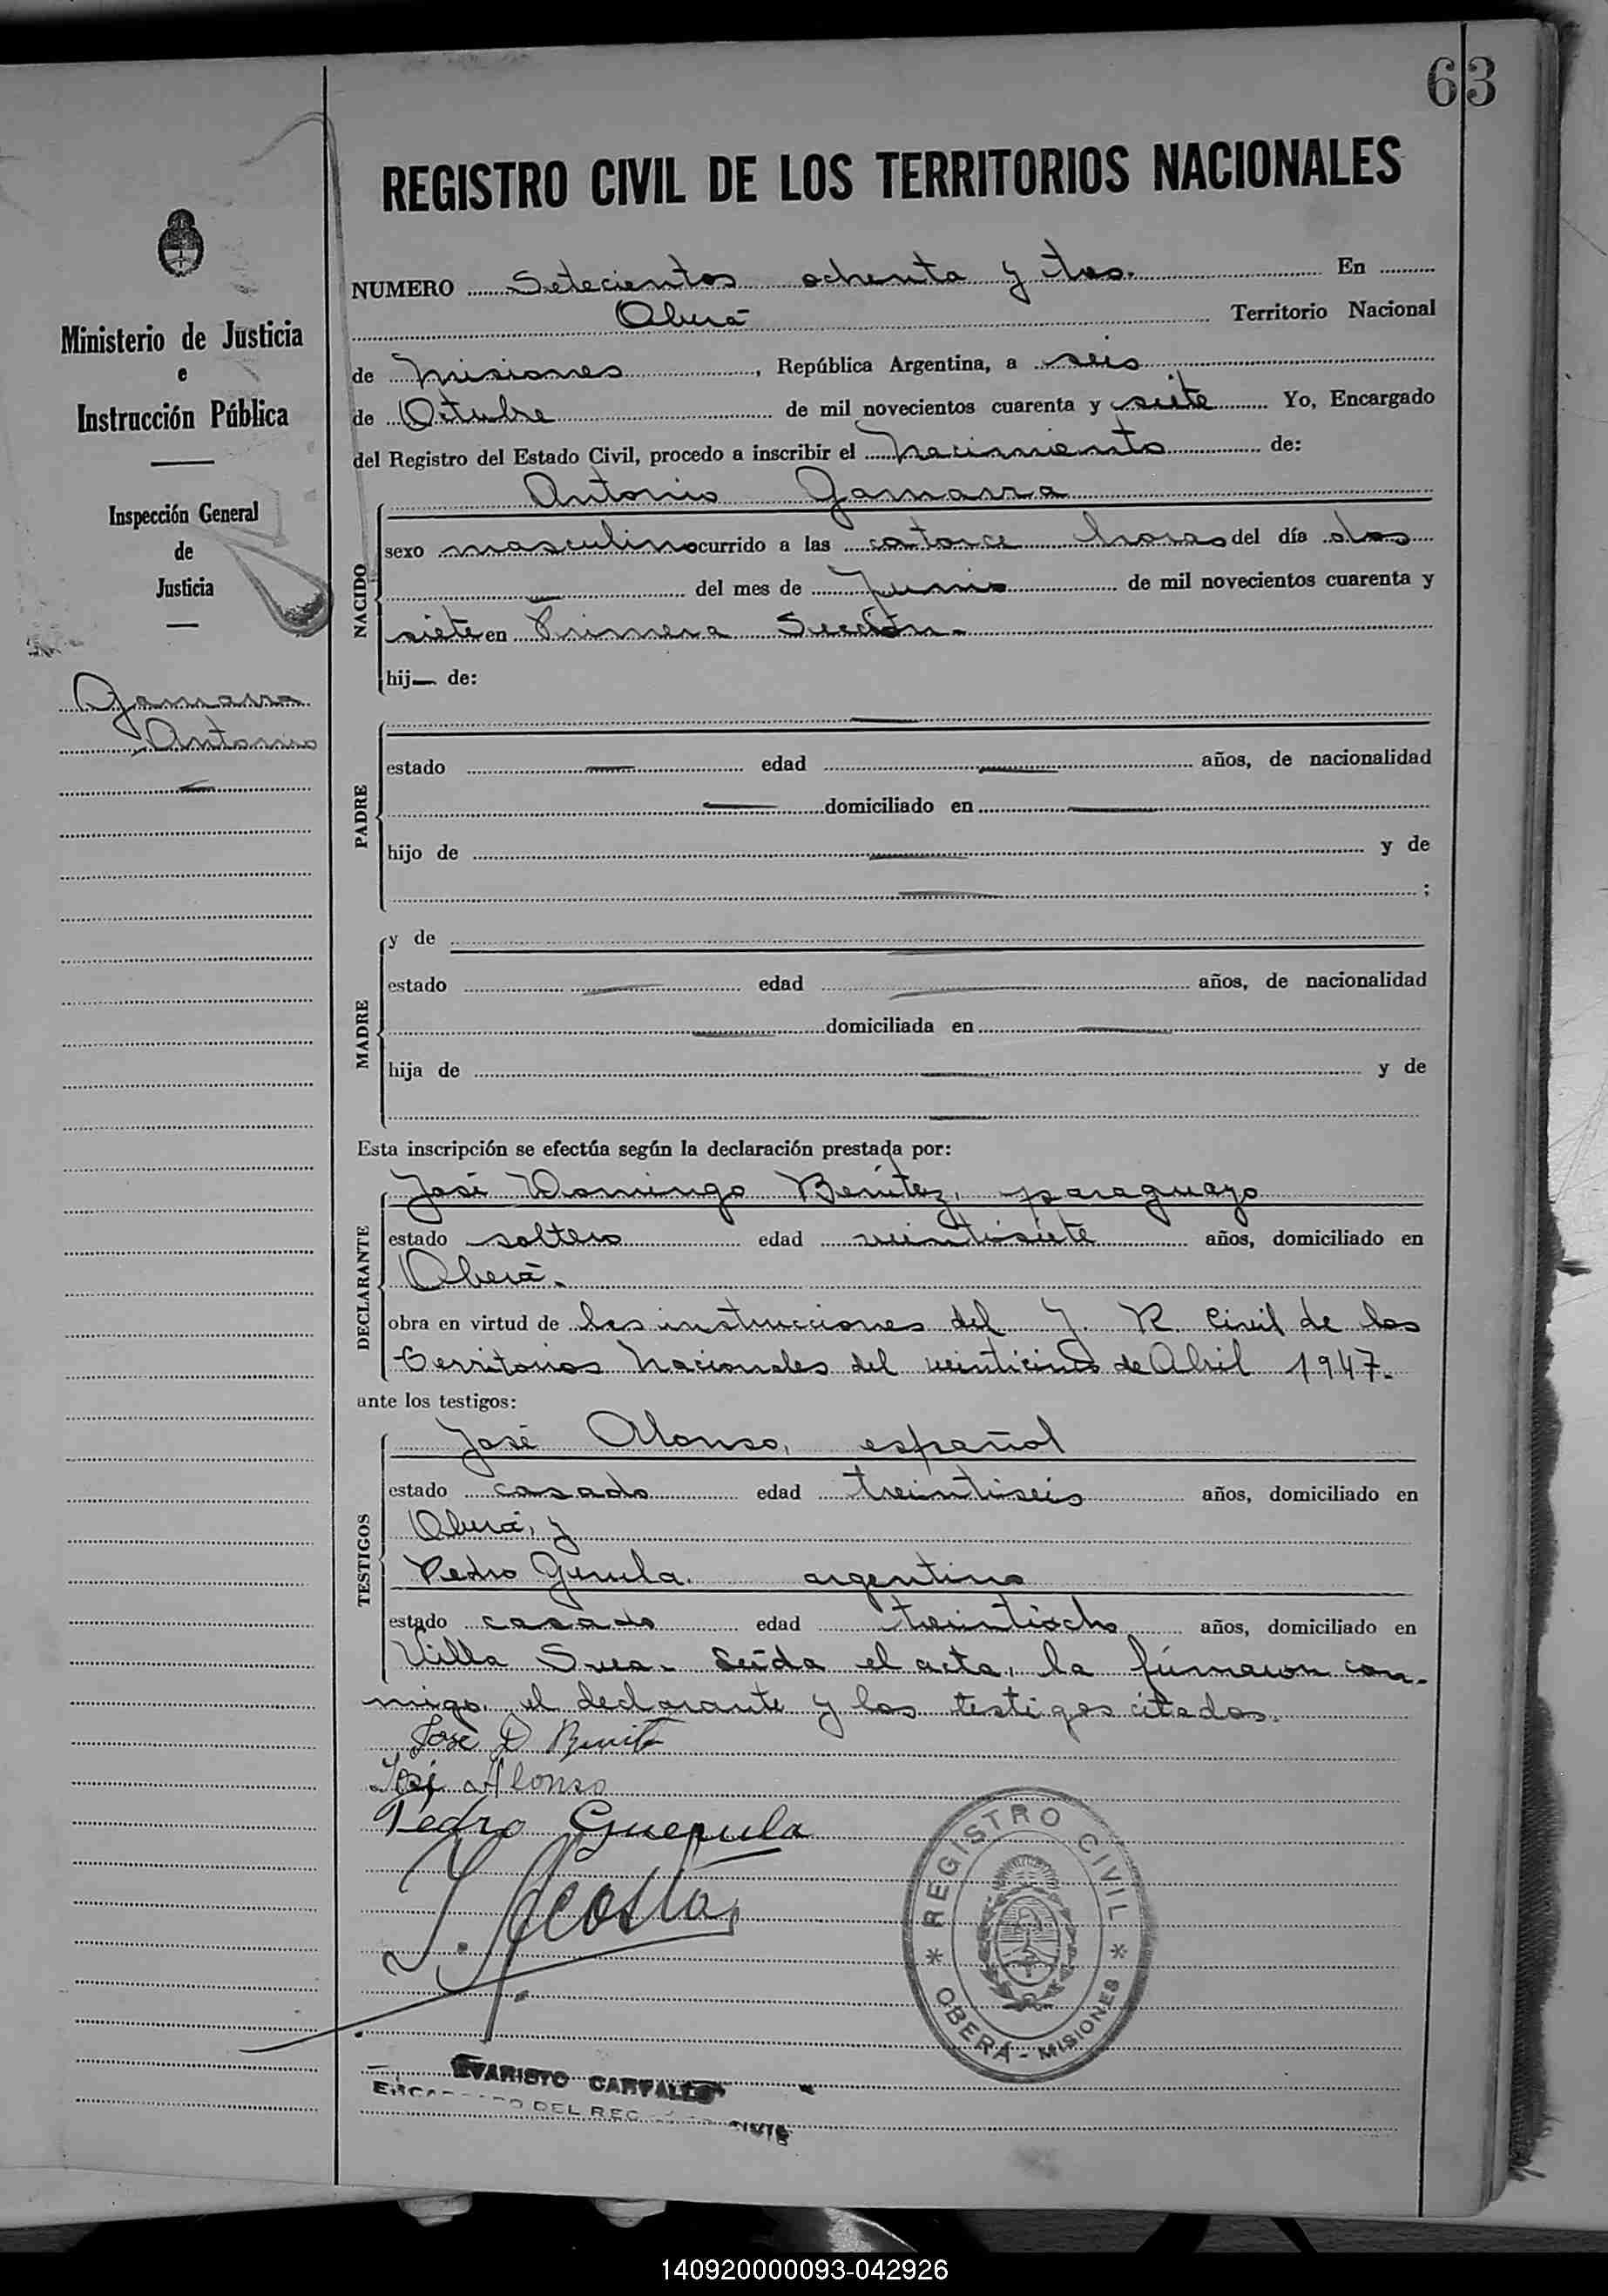 63
REGISTRO CIVIL DE LOS TERRITORIOS NACIONALES
Ministerio de Justicia
e
Instrucción Pública
Inspección General
de
Justicia
Gamarra
Antonio
NUMERO Setecientos ochenta y tres. En
Oberá Territorio Nacional
de Misiones, República Argentina, a seis
de Octubre de mil novecientos cuarenta y siete Yo, Encargado
del Registro del Estado Civil, procedo a inscribir el nacimiento de:
Antonio Gamarra
NACIDO
sexo masculino ocurrido a las catorce horas del día dos
del mes de Junio de mil novecientos cuarenta y
siete en Primera Sección.
hij— de:
PADRE
estado — edad — años, de nacionalidad
— domiciliado en —
hijo de — y de
— ;
MADRE
y de —
estado — edad — años, de nacionalidad
— domiciliada en —
hija de — y de
—
Esta inscripción se efectúa según la declaración prestada por:
DECLARANTE
José Domingo Benítez, paraguayo
estado soltero edad veintisiete años, domiciliado en
Oberá.
obra en virtud de las instrucciones del J. R. Civil de los
Territorios Nacionales del veinticinco de Abril 1947.
ante los testigos:
TESTIGOS
José Alonso, español
estado casado edad treintiseis años, domiciliado en
Oberá, y
Pedro argentino
estado casado edad treintiocho años, domiciliado en
Villa Svea. Leída el acta, la firmaron con-
migo, el declarante y los testigos citados.
José D Benitez
José Alonso
Pedro Guerula
J. Acosta
REGISTRO CIVIL
* OBERÁ - MISIONES *
EVARISTO CARVALLO
ENCARGADO DEL REGISTRO CIVIL
140920000093-042926